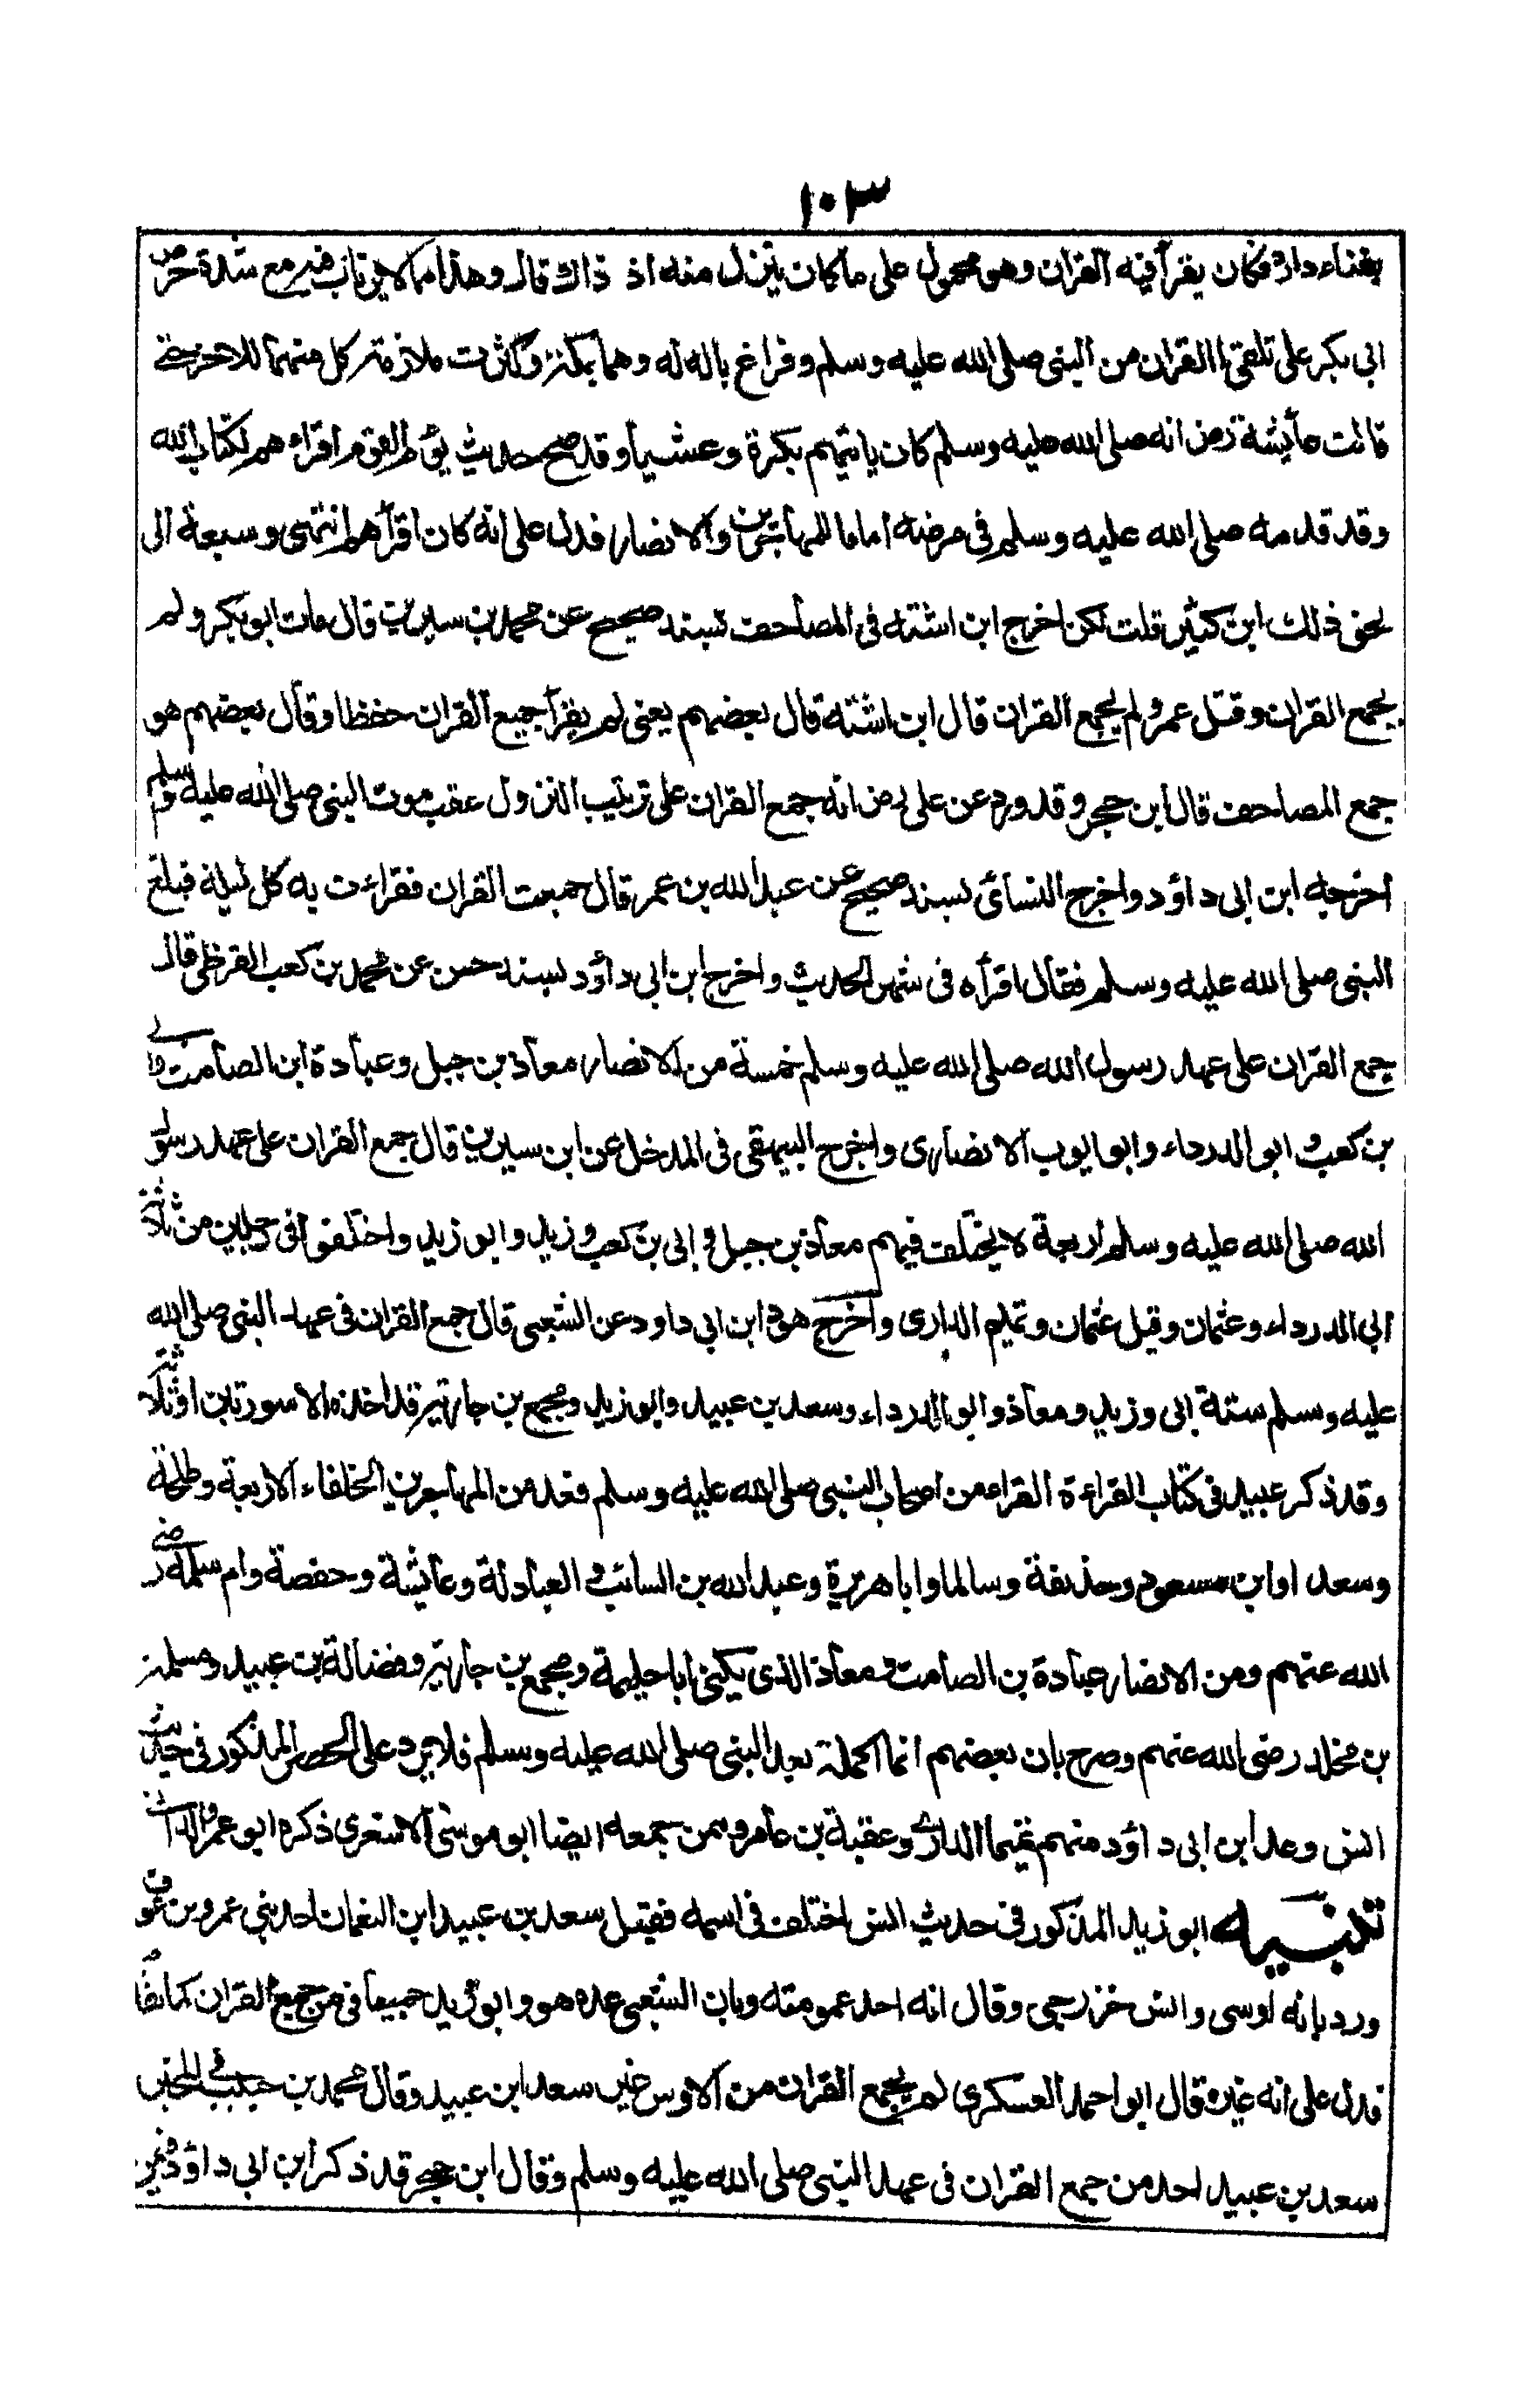 ١٠٣
بفناء داره فكان يقرأ فيه القران وهو محمول على ما كان ينزل منه اذ ذاك قال وهذا مما لا يرتاب فيه مع شدة حرص
ابى بكر على تلقى القران من النبى صلى الله عليه وسلم وفراغ باله له وهما بمكة وكثرت ملازمة كل منهما للاخر حتى
قالت عائشة رض انه صلى الله عليه وسلم كان ياتيهم بكرة وعشيا وقد صح حديث يؤم القوم اقراءهم لكتاب الله
وقد قدمه صلى الله عليه وسلم فى مرضه اماما للمهاجرين والانصار فدل على انه كان اقرأهم انتهى وسبعة الى
نحو ذلك ابن كثير قلت لكن اخرج ابن اشته فى المصاحف بسند صحيح عن محمد بن سيرين قال مات ابو بكر ولم
يجمع القران وقتل عمر ولم يجمع القران قال ابن اشته قال بعضهم يعنى لم يقرأ جميع القران حفظا وقال بعضهم هو
جمع المصاحف قال ابن حجر وقد ورد عن على رض انه جمع القران على ترتيب النزول عقب موت النبى صلى الله عليه وسلم
اخرجه ابن ابى داؤد واخرج النسائى بسند صحيح عن عبد الله بن عمر قال جمعت القران فقراءت به كل ليلة فبلغ
النبى صلى الله عليه وسلم فقال اقرأه فى شهر الحديث واخرج ابن ابى داؤد بسند حسن عن محمد بن كعب القرظى قال
جمع القران على عهد رسول الله صلى الله عليه وسلم خمسة من الانصار معاذ بن جبل وعبادة ابن الصامت وابى
بن كعب و ابو الدرداء وابو ايوب الانصارى واخرج البيهقى فى المدخل عن ابن سيرين قال جمع القران على عهد رسول
الله صلى الله عليه وسلم اربعة لا يختلف فيهم معاذ بن جبل و ابى بن كعب وزيد وابو زيد واختلفوا فى رجلين من ثلاثة
ابى الدرداء وعثمان وقيل عثمان وتميم الدارى واخرج هو و ابن ابى داود عن الشعبى قال جمع القران فى عهد النبى صلى الله
عليه وسلم ستة ابى وزيد ومعاذ وابو الدرداء وسعد بن عبيد وابو زيد ومجمع بن جارية قد اخذه الا سورتين او ثلاثة
وقد ذكر عبيد فى كتاب القراءة القراء من اصحاب النبى صلى الله عليه وسلم فعد من المهاجرين الخلفاء الاربعة وطلحة
وسعد اوابن مسعود وحذيفة وسالما وابا هريرة وعبد الله بن السائب و العبادلة وعائشة وحفصة وام سلمة رضى
الله عنهم ومن الانصار عبادة بن الصامت و معاذ الذى يكنى ابا حليمة ومجمع بن جارية وفضالة بن عبيد ومسلمة
بن مخلد رضى الله عنهم وصرح بان بعضهم انما اكمله بعد النبى صلى الله عليه وسلم فلا يرد على الحصر المذكور فى حديث
انس وعد ابن ابى داؤد منهم تميما الدارى وعقبة بن عامر وممن جمعه ايضا ابو موسى الاشعرى ذكره ابو عمرو الدانى
تنبيه ابو زيد المذكور فى حديث انس اختلف فى اسمه فقيل سعد بن عبيد ابن النعمان احد بنى عمرو بن عوف
ورد بانه اوسى وانس خزرجى وقال انه احد عمومته وبان الشعبى عده هو وابو زيد جميعا فى من جمع القران كما تقدم
فدل على انه غيره قال ابو احمد العسكرى لم يجمع القران من الاوس غير سعد ابن عبيد وقال محمد بن حبيب فى المحبر
سعد بن عبيد احد من جمع القران فى عهد النبى صلى الله عليه وسلم وقال ابن حجر قد ذكر ابن ابى داؤد فيمن